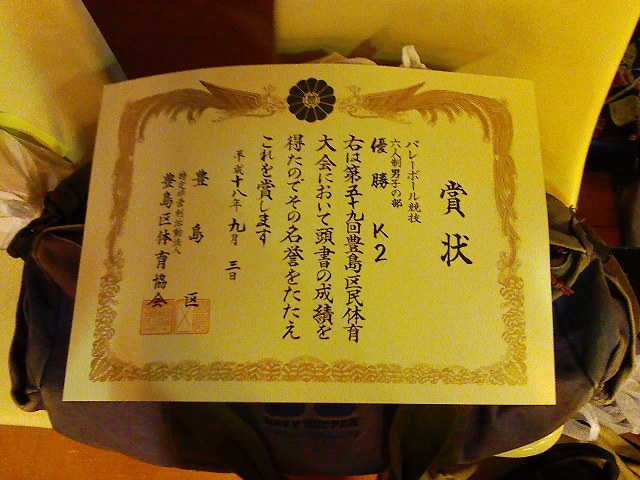 賞状
バレーボール競技
六人制男子の部
優勝 K2
右は第五十九回豊島区民体育
大会において頭書の成績を
得たのでその名誉をたたえ
これを賞します
平成十八年九月三日
豊島区
特定非営利活動法人
豊島区体育協会
NAVY HOPPER